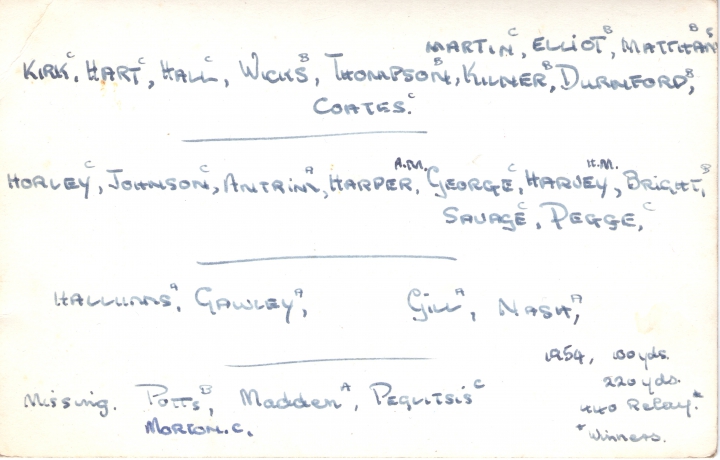 MARTIN C, ELLIOT B, MATTHAMS B
KIRK C, HART C, HALL C, WICKS B, THOMPSON B, KILNER B, DURNFORD B,
COATES C.
HORLEY C, JOHNSON C, ANTRIM A, HARPER A.M., GEORGE C, HARVEY H.M., BRIGHT B,
SAVAGE C, PEGGE C,
HALLUMS A, GAWLEY A, GILL A, NASH A,
1954, 100 yds.
220 yds.
440 Relay.*
*Winners.
Missing. POTTS B, Madden A, PEQLITSIS C
MORTON. C.